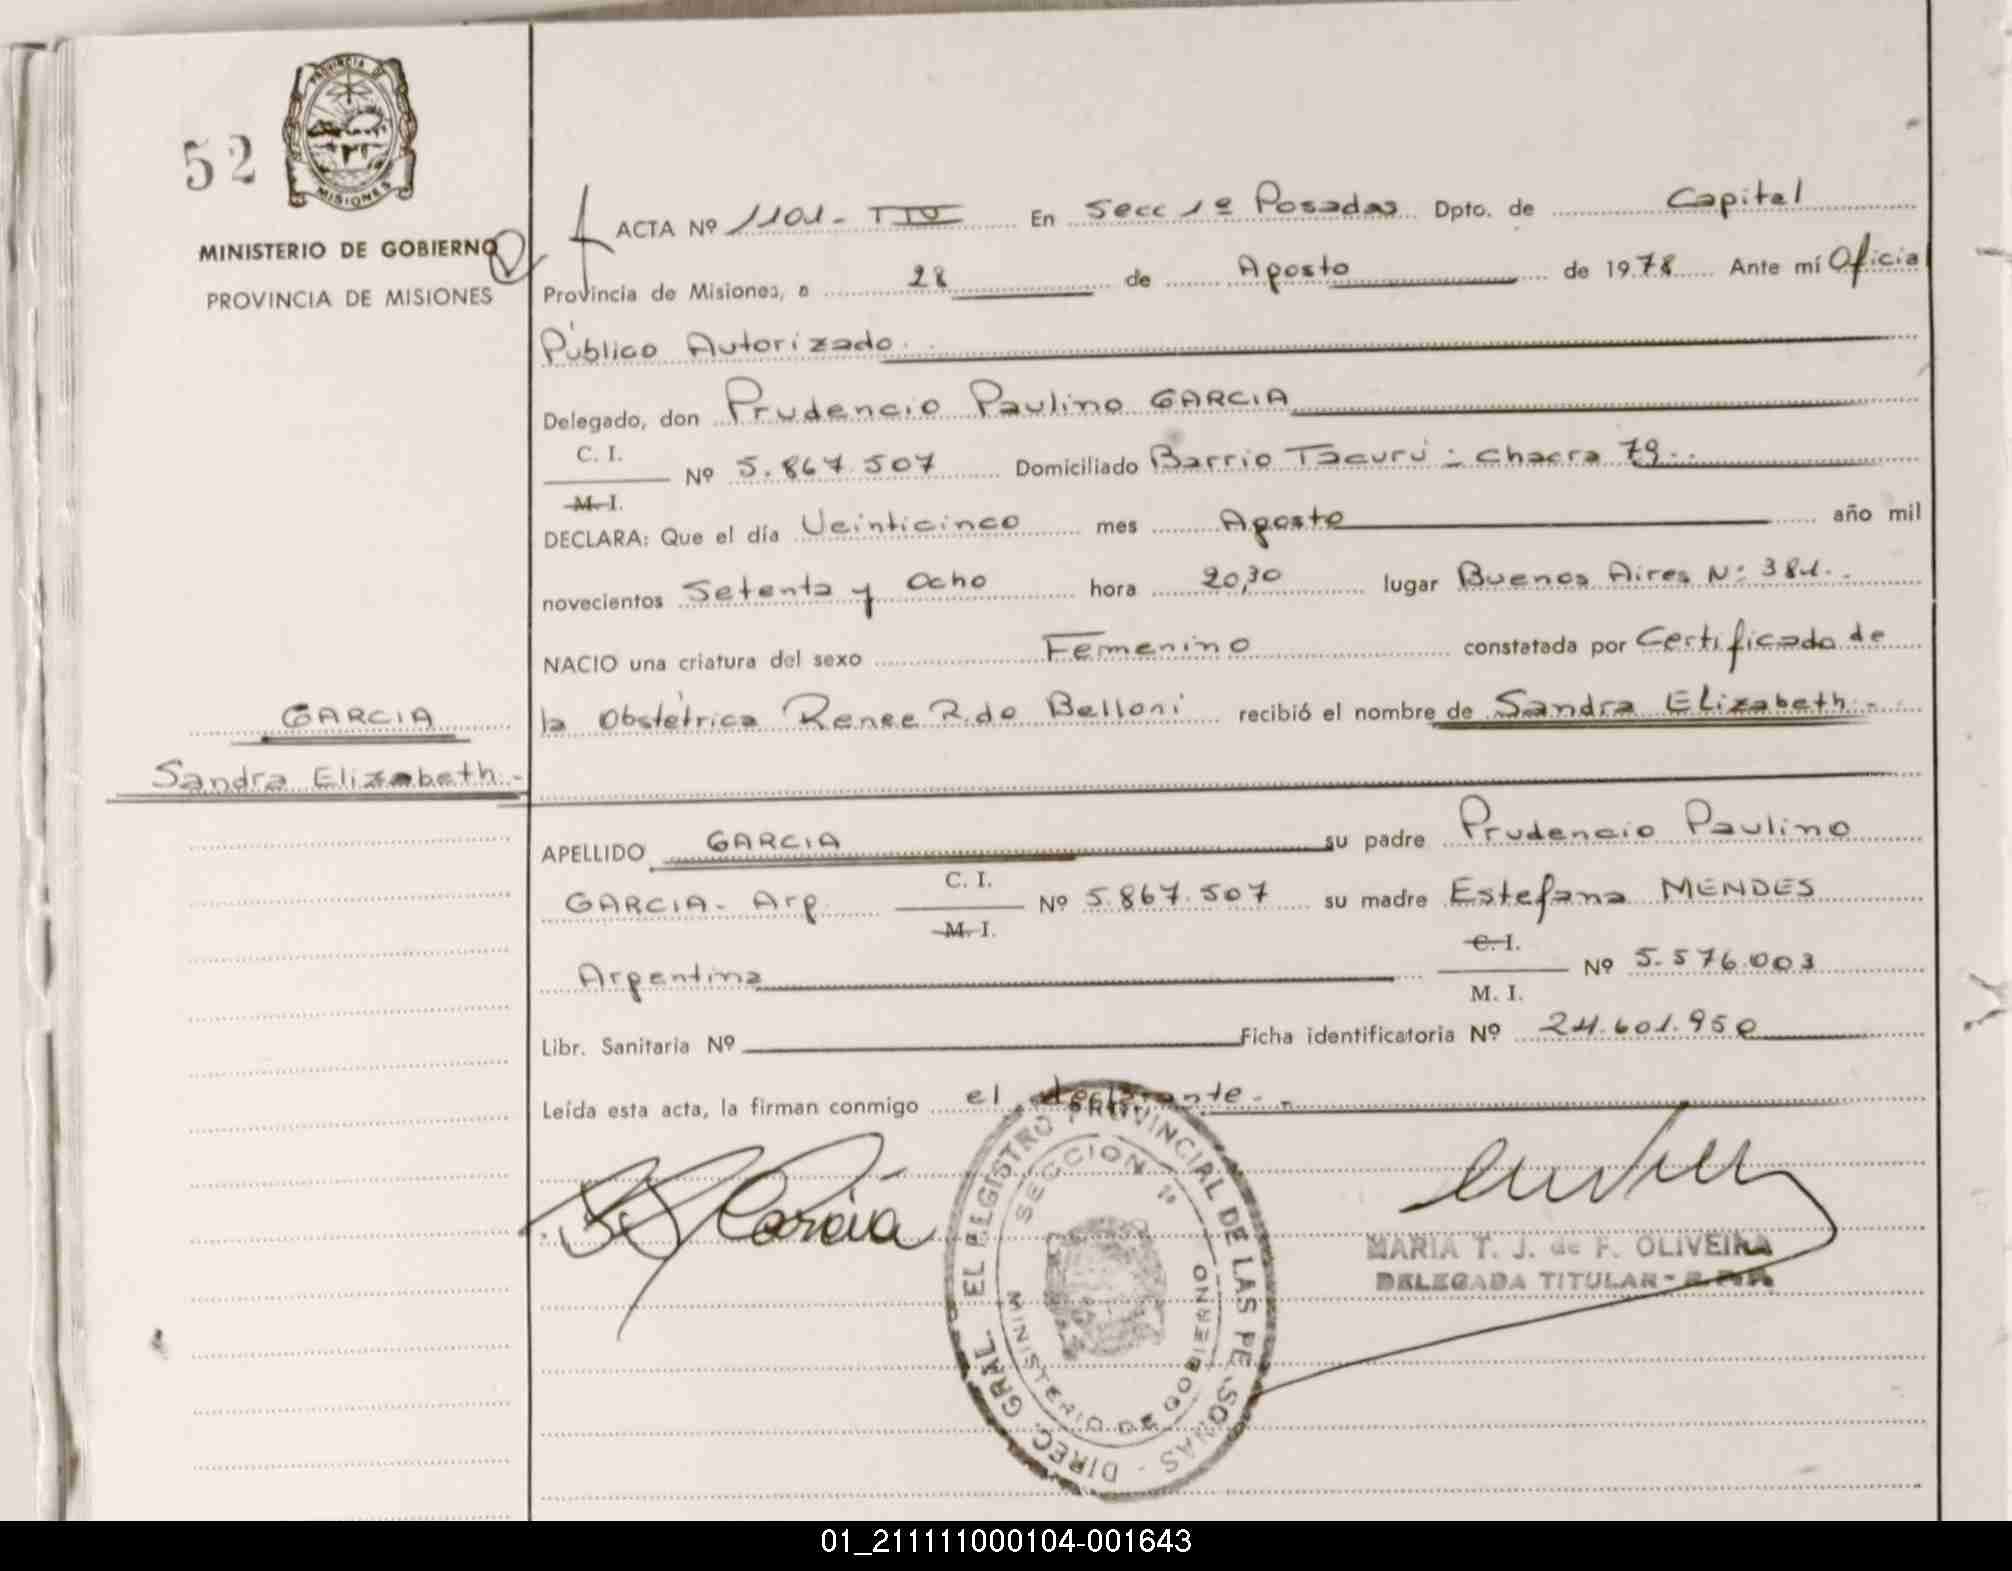 52
PROVINCIA DE
MISIONES
MINISTERIO DE GOBIERNO
PROVINCIA DE MISIONES
ACTA Nº 1101- TIV En Secc 1º Posadas Dpto. de Capital
Provincia de Misiones, a 28 de Agosto de 1978 Ante mí Oficial
Público Autorizado.
Delegado, don Prudencio Paulino GARCIA
C. I.
M. I.
Nº 5.867.507 Domiciliado Barrio Tacurú - chacra 79.-
DECLARA: Que el día Veinticinco mes Agosto año mil
novecientos Setenta y Ocho hora 20,30 lugar Buenos Aires Nº 381.-
NACIO una criatura del sexo Femenino constatada por Certificado de
la Obstétrica Renee R. de Belloni recibió el nombre de Sandra Elizabeth.-
GARCIA
Sandra Elizabeth.-
APELLIDO GARCIA su padre Prudencio Paulino
GARCIA- Arg. C. I. M. I. Nº 5.867.507 su madre Estefana MENDES
Argentina C. I. M. I. Nº 5.576.003
Libr. Sanitaria Nº Ficha identificatoria Nº 24.601.950
Leída esta acta, la firman conmigo el declarante.-
Garcia
DIREC. GRAL. EL REGISTRO PROVINCIAL DE LAS PERSONAS -
SECCION 1º
MINISTERIO DE GOBIERNO
MARIA T. J. de F. OLIVEIRA
DELEGADA TITULAR - R.P.P.
01_211111000104-001643